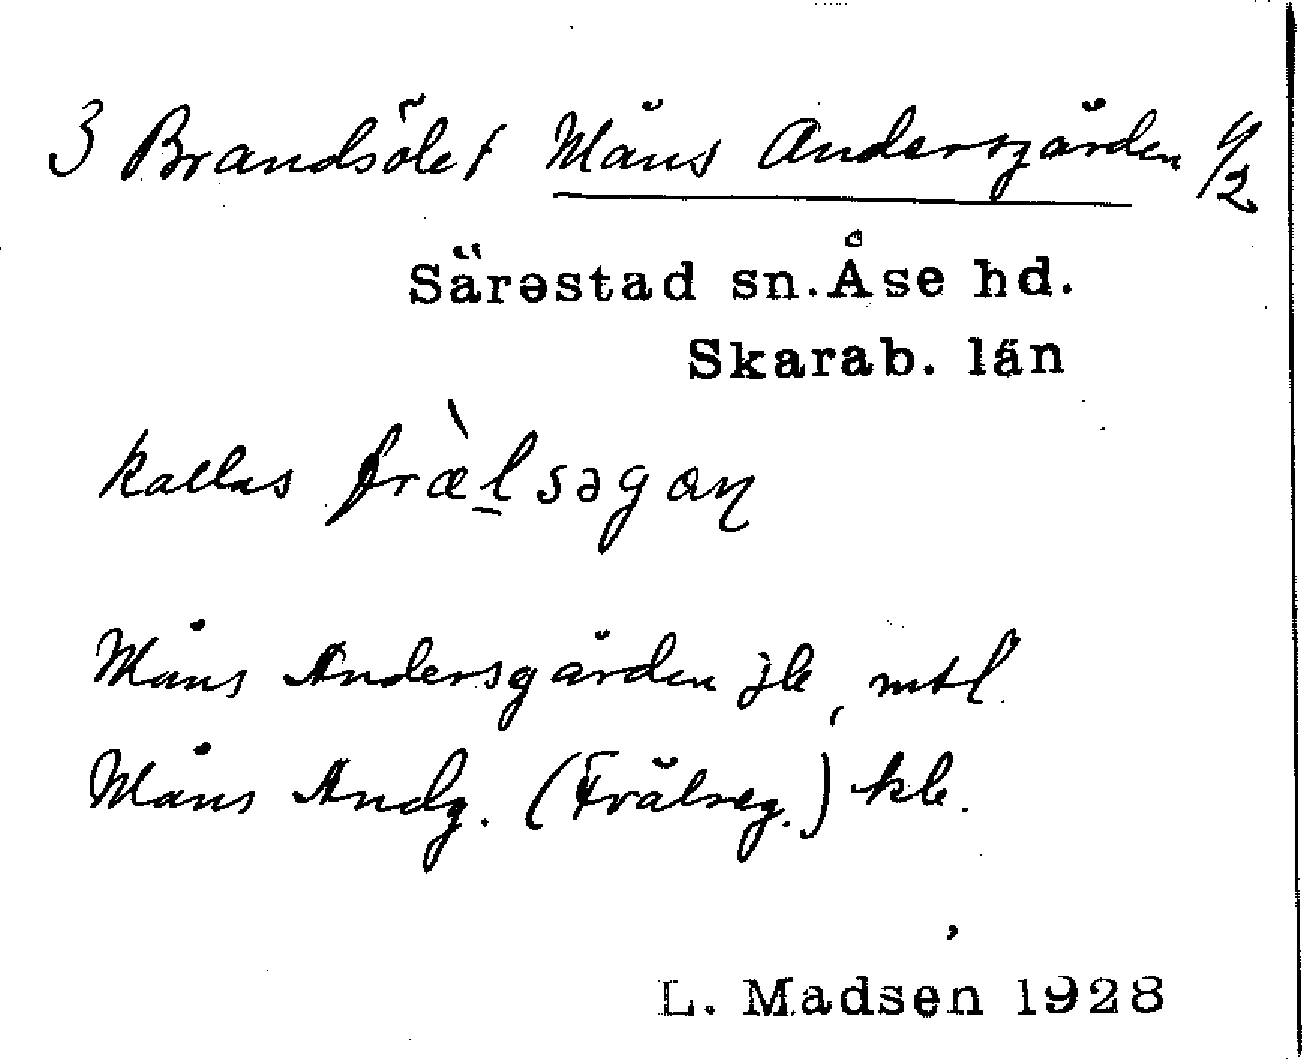 3 Brandsölet Måns Andersgården 1/2
Särestad sn. Åse hd.
Skarab. län
kallas fræ̀l̠səgaɳ
Måns Andersgården jb, mtl
Måns Andg. (Frälseg.) kb.
L. Madsen 1928